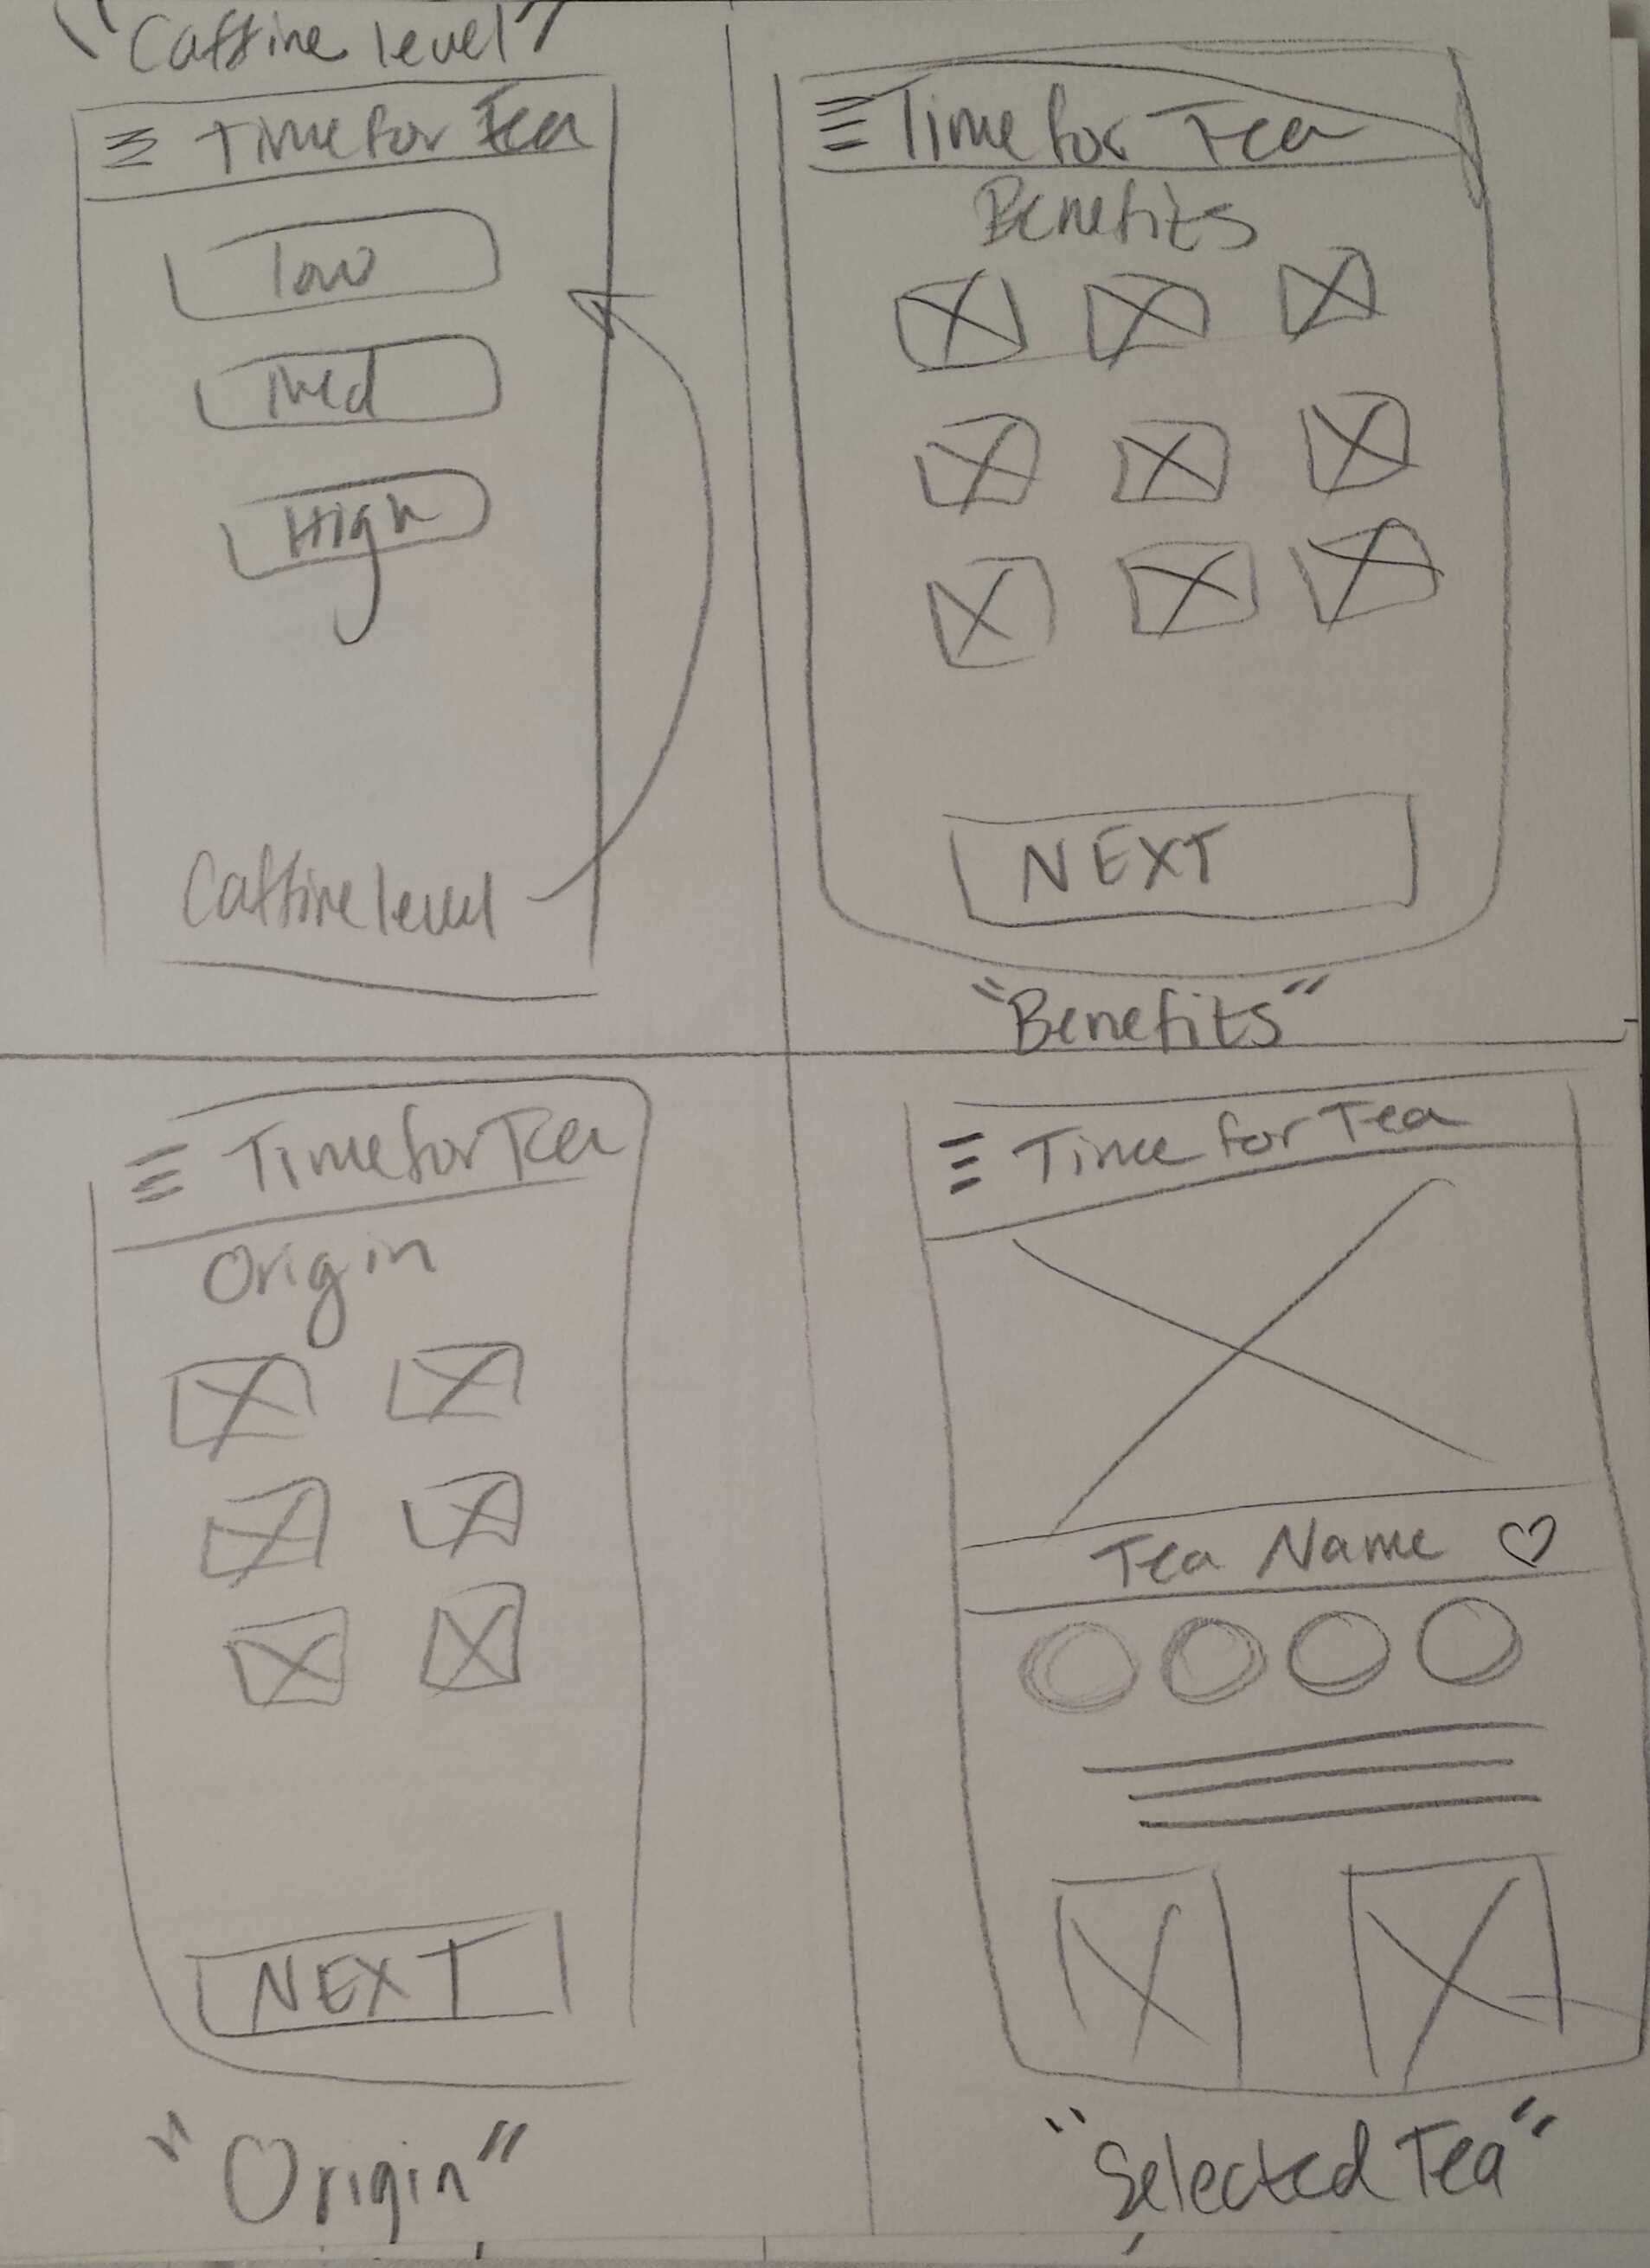 "Caffine level"
Time for Tea
low
Med
High
Caffine level
Time for Tea
Benefits
NEXT
"Benefits"
Time for Tea
Origin
NEXT
"Origin"
Time for Tea
Tea Name
"Selected Tea"